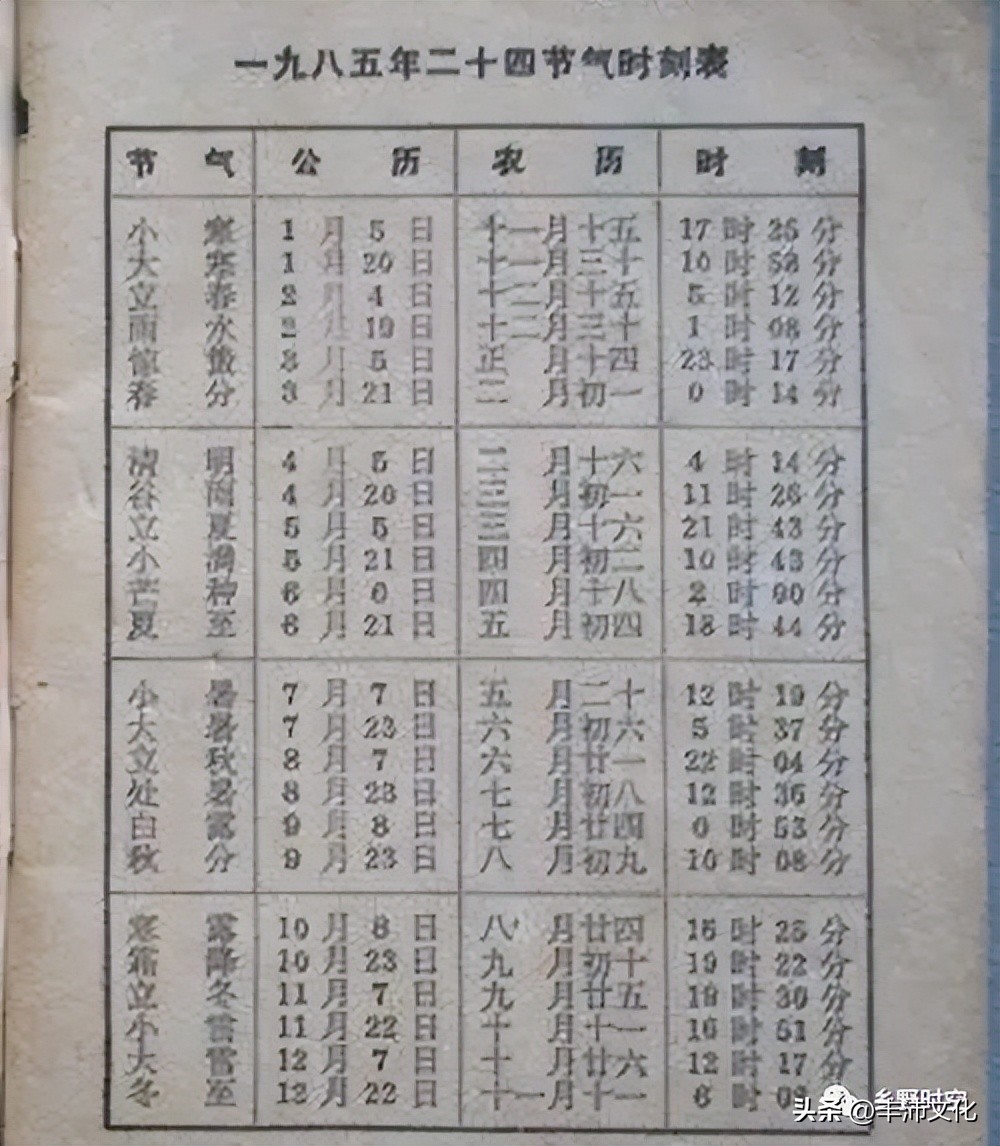 一九八五年二十四节气时刻表
节气 公历 农历 时刻
小寒 1月5日 十一月十五 17时25分
大寒 1月20日 十一月三十 10时58分
立春 2月4日 十二月十五 5时12分
雨水 2月19日 十二月三十 1时08分
惊蛰 3月5日 正月十四 23时17分
春分 3月21日 二月初一 0时14分
清明 4月5日 二月十六 4时14分
谷雨 4月20日 三月初一 11时26分
立夏 5月5日 三月十六 21时43分
小满 5月21日 四月初二 10时43分
芒种 6月6日 四月十八 2时00分
夏至 6月21日 五月初四 18时44分
小暑 7月7日 五月二十 12时19分
大暑 7月23日 六月初六 5时37分
立秋 8月7日 六月廿一 22时04分
处暑 8月23日 七月初八 12时36分
白露 9月8日 七月廿四 0时53分
秋分 9月23日 八月初九 10时08分
寒露 10月8日 八月廿四 16时25分
霜降 10月23日 九月初十 19时22分
立冬 11月7日 九月廿五 19时30分
小雪 11月22日 十月十一 16时51分
大雪 12月7日 十月廿六 12时17分
冬至 12月22日 十一月十一 6时
乡野时空
头条 @丰沛文化